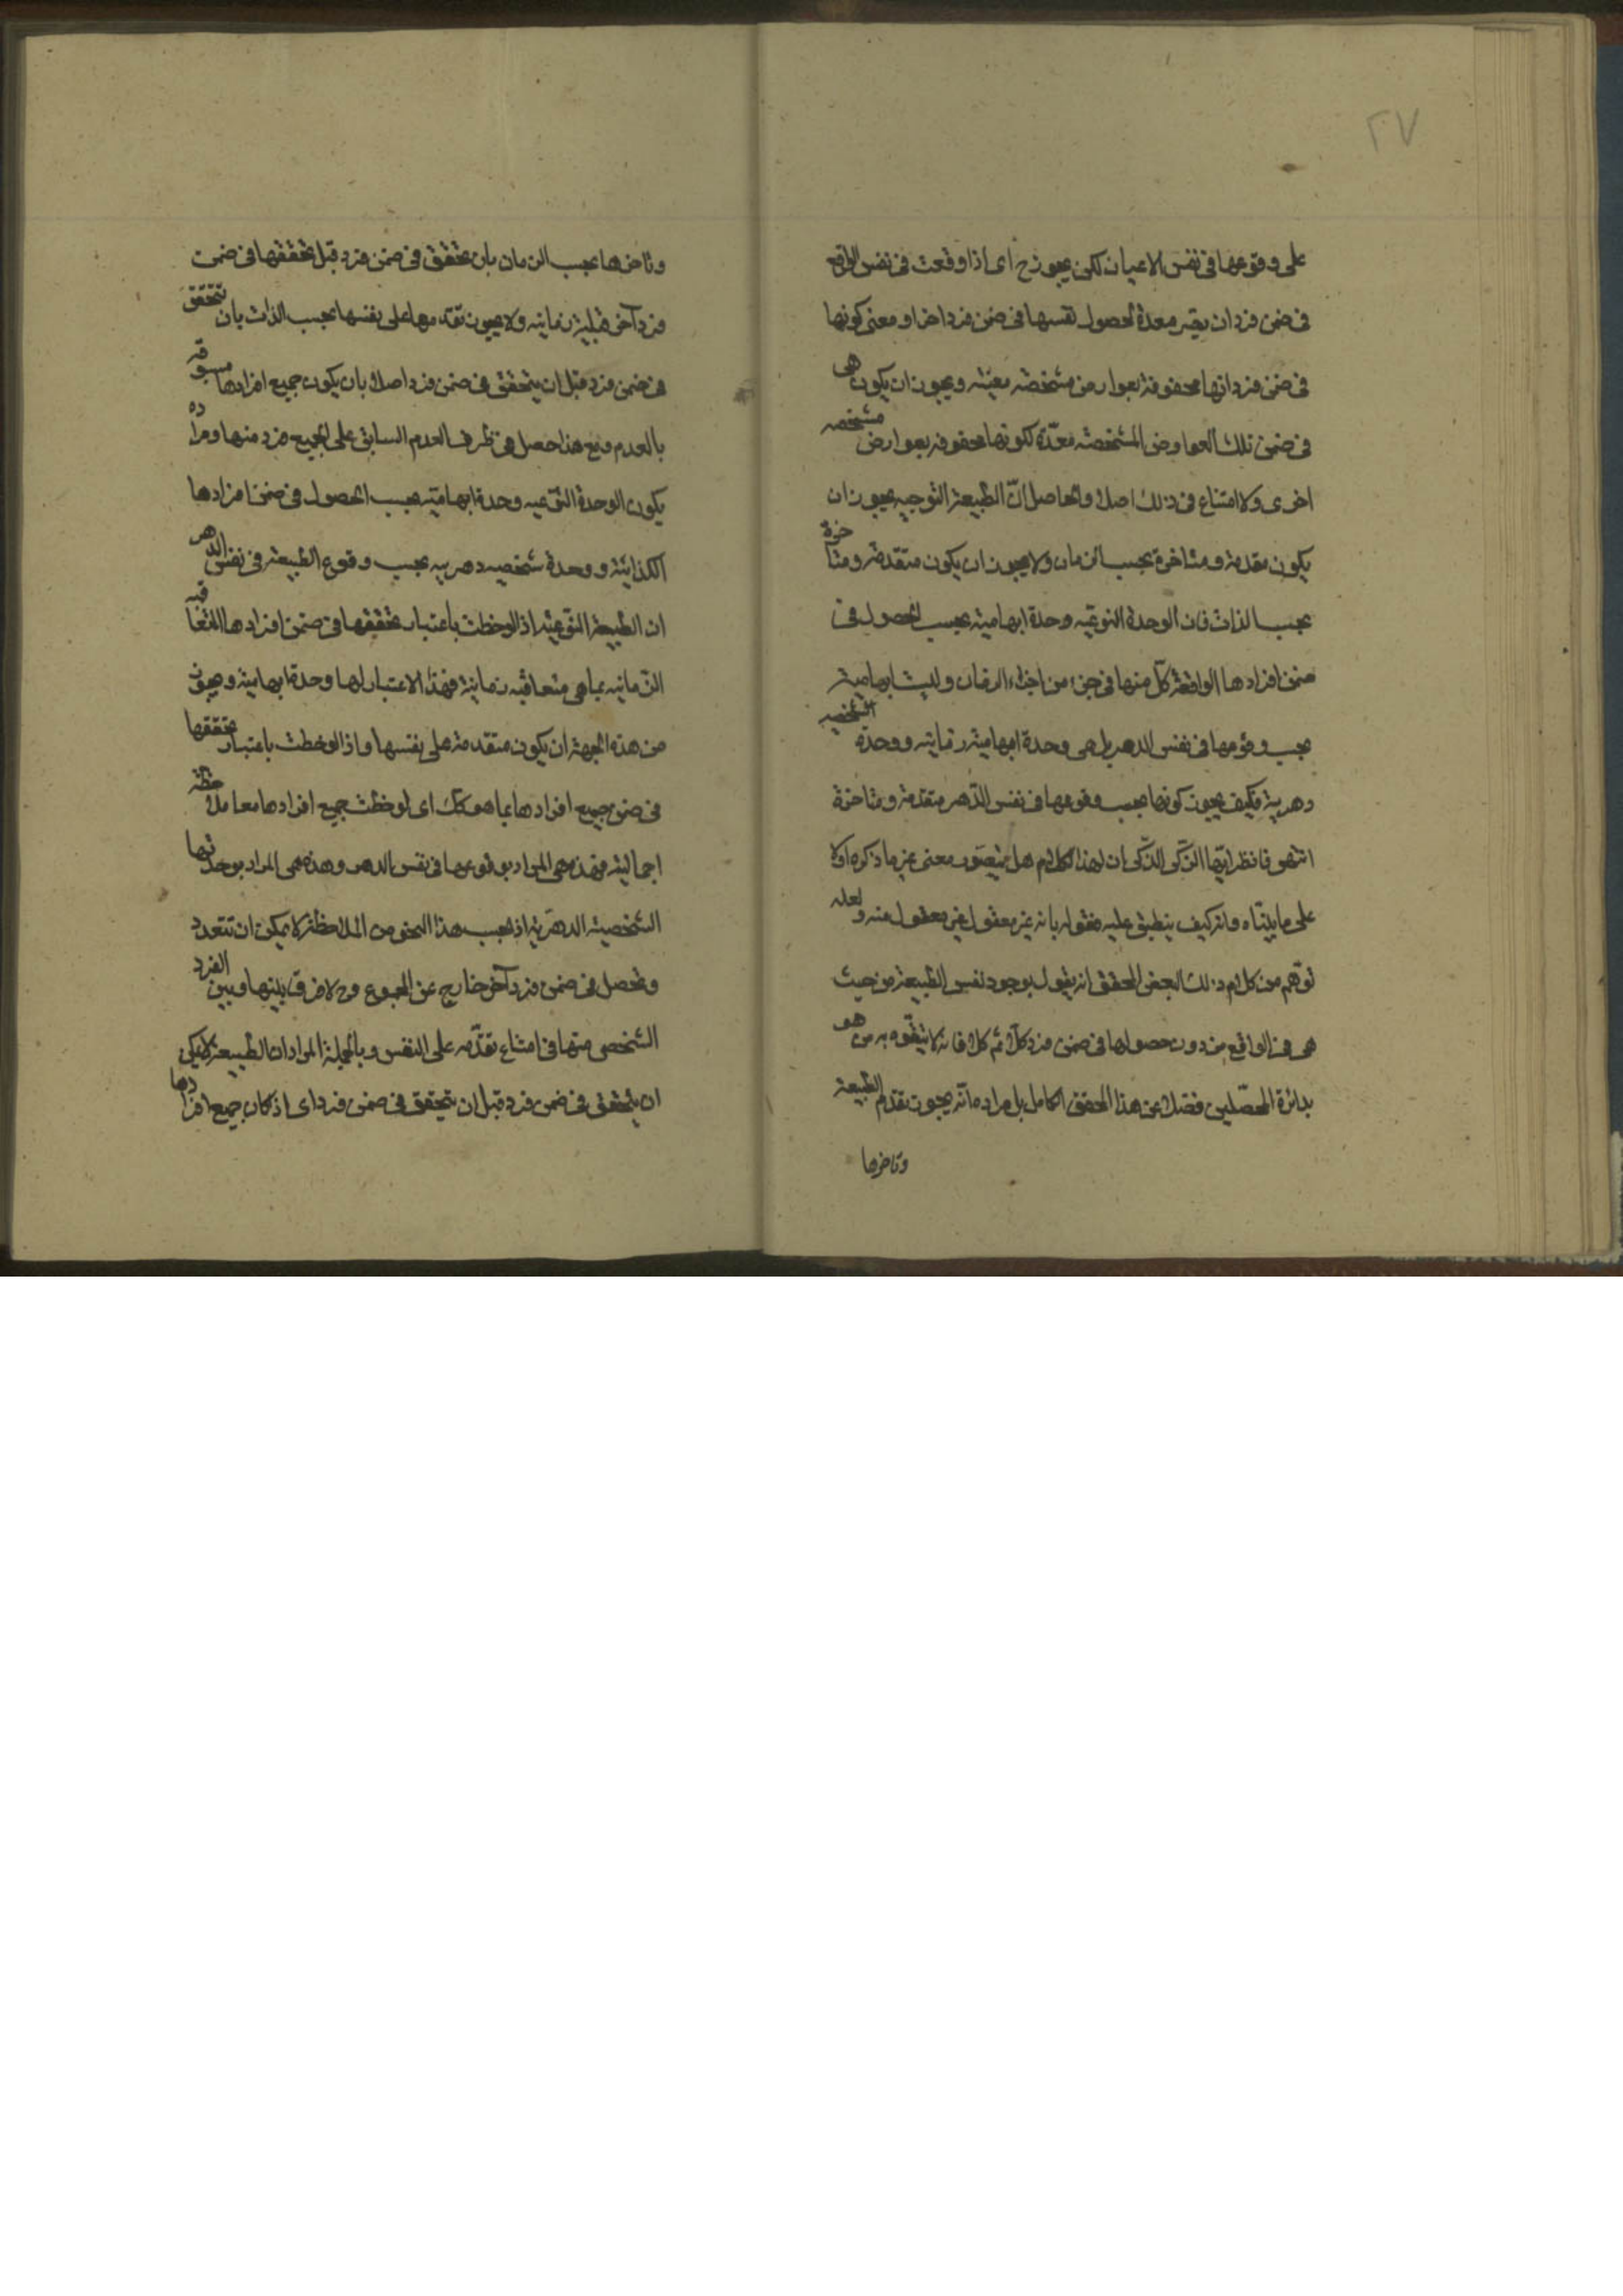 ٢٧
على وقوعها في نفس الاعيان لكن يجوز ح اى اذا وقعت في نفس الواقع
في ضمن فرد ان يصير معدة لحصول نفسها في ضمن فرد اخر او معنى كونها
في ضمن فرد انها محفوفة بعوارض مشخصه معينه ويجوز ان يكون هى
في ضمن تلك العوارض المشخصه معدّة لكونها محفوفه بعوارض مشخصه
اخرى ولا امتناع في ذلك اصلا والحاصل انّ الطبيعة النوعيه يجوز ان
يكون مقدمة ومتاخرة بحسب الزمان ولا يجوز ان يكون متقدمة ومتاخرة
بحسب الذات فان الوحدة النوعيّه وحدة ابهامية بحسب الحصول في
ضمن افرادها الواقعة كلّ منها في جزء من اجزاء الزمان وليست ابهامية
بحسب وقوعها في نفس الدهر بل هى وحدة ابهامية زمانيه ووحدة الشخصيه
دهرية فكيف يجوز كونها بحسب وقوعها في نفس الدّهر متقدمة ومتاخرة
انتهى فانظر ايّها الذكى ان لهذا الكلام هل يتصّور معنى غير ما ذكره اولا
على ما بيّناه وانه كيف ينطبق عليه مقوله بانه غير معقول غير معقول منه ولعله
توهم من كلام ذلك البعض المحقق انه يقول بوجود نفس الطبيعة من حيث
هى في الواقع من دون حصولها في ضمن فرد كلا ثم كلا فانه لا يتفّوه به من هو
بدائرة المحصّلين فضلا عن هذا المحقق الكامل بل مراده انّه يجوز تقدم الطبيعة
وتاخرها
وتاخرها بحسب الزمان بان يتحقق في ضمن فرد قبل تحققها في ضمن
فرد آخر قبلية زمانيه ولا يجوز تقدمها على نفسها بحسب الذات بان تتحقق
في ضمن فرد قبل ان يتحقق في ضمن فرد اصلا بان يكون جميع افرادها مسبوقه
بالعدم ومع هذا حصل في ظرف العدم السابق على الجميع فرد منها ومراده
يكون الوحدة النّوعيه وحدة ابهاميّه بحسب الحصول في ضمن افرادها
الكذائية ووحدة شخصيه دهريه بحسب وقوع الطبيعة في نفس الدهر
ان الطبيعة النّوعيّه اذا لوحظت باعتبار تحققها في ضمن افرادها المتعاقبه
الزمانيه بما هى متعاقبه زمانية فبهذا الاعتبار لها وحدة ابهامية ويجوز
من هذه الجهة ان يكون متقدمة على نفسها واذا لوحظت باعتبار تحققها
في ضمن جميع افرادها بما هو كك اى لوحظت جميع افرادها معا ملاحظه
اجمالية فهذه هى المراد بوقوعها في نفس الدهر وهذه هى المراد بوحدتها
الشخصية الدهرّية اذ بحسب هذا النحو من الملاحظة لا يمكن ان تتعدد
وتحصل في ضمن فرد آخر خارج عن المجموع وح لا فرق بينها وبين الفرد
الشخصى منها في امتناع تقدّمه على النفس وبالجملة المراد ان الطبيعة لا يمكن
ان يتحقق في ضمن فرد قبل ان يتحقق في ضمن فرد اى اذ كان جميع افرادها